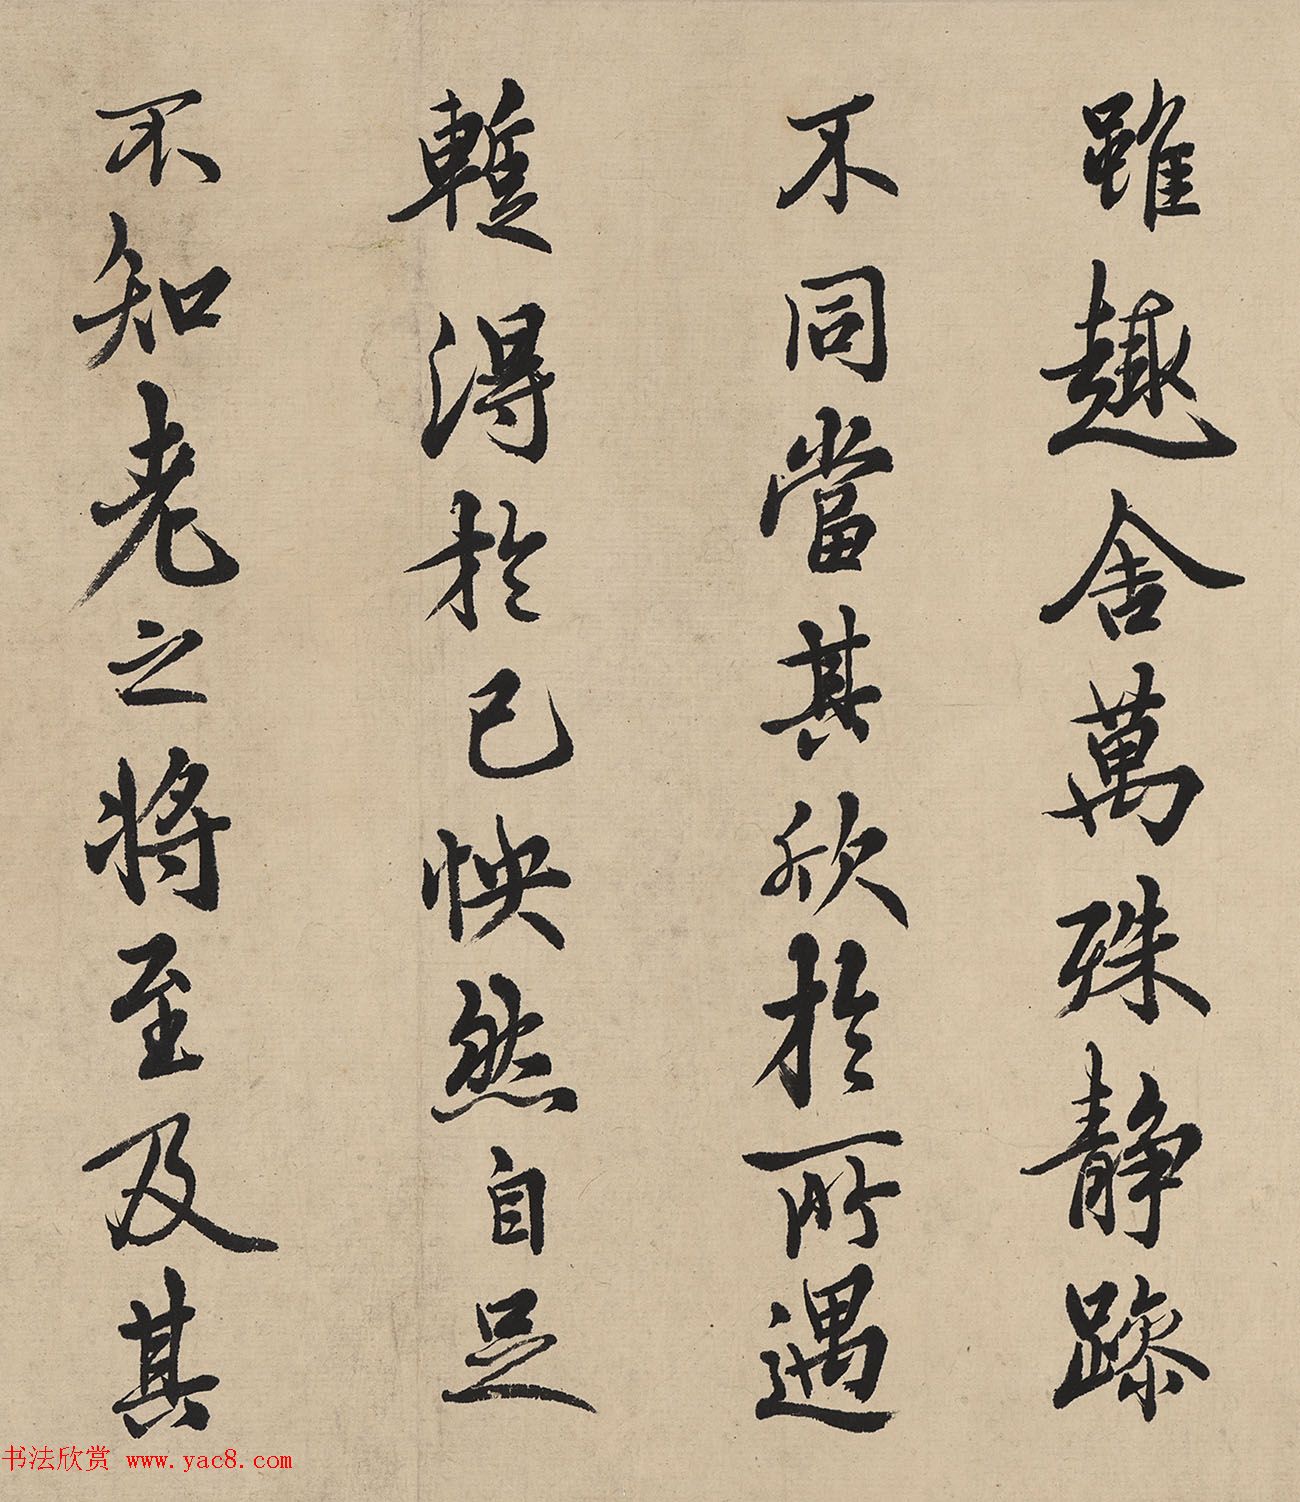 雖趣舎萬殊静躁
不同當其欣於所遇
蹔得於己怏然自足
不知老之将至及其
书法欣赏 www.yac8.com